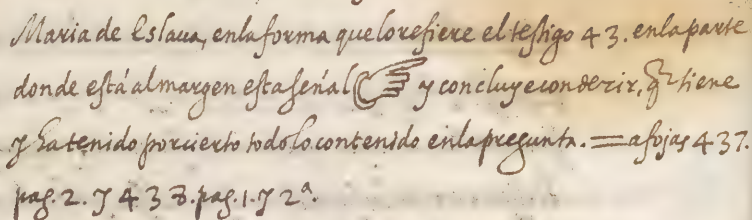 Maria de Eslaua, en la forma que lo refiere el testigo 43. en la parte
donde está al margen esta señal ☞ y concluye con decir, q̃ tiene
y ha tenido por cierto todo lo contenido en la pregunta. = a fojas 437.
pag. 2. y 438. pag. 1. y 2ª.